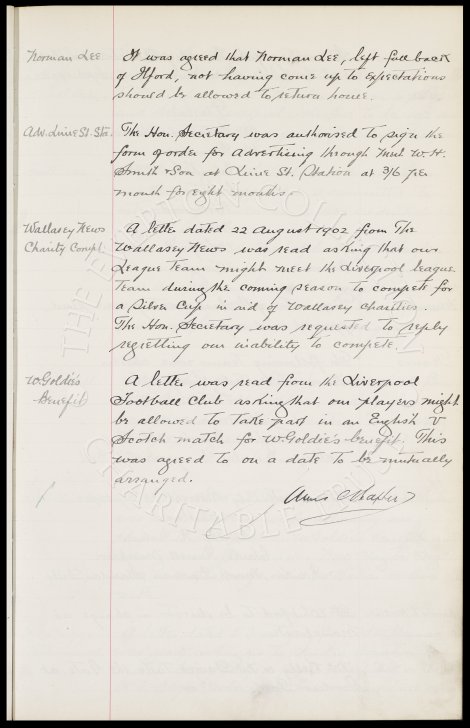 Norman Lee
It was agreed that Norman Lee, left full back
of Ilford, not having come up to expectations
should be allowed to return home.
Adv. Lime St. Sta.
The Hon. Secretary was authorised to sign the
form of order for Advertising through Messrs W. H.
Smith & Son at Lime St. Station at 3/6 per
month for eight months.
Wallasey News
Charity Compt.
A letter dated 22 August 1902 from The
Wallasey News was read asking that our
League Team might meet the Liverpool League
Team during the coming season to compete for
a Silver Cup in aid of Wallasey Charities.
The Hon. Secretary was requested to reply
regretting our inability to compete.
W. Goldie's
Benefit
A letter was read from the Liverpool
Football Club asking that our players might
be allowed to take part in an English V
Scotch match for W. Goldie's benefit. This
was agreed to on a date to be mutually
arranged.
THE EVERTON COLLECTION
CHARITABLE TRUST